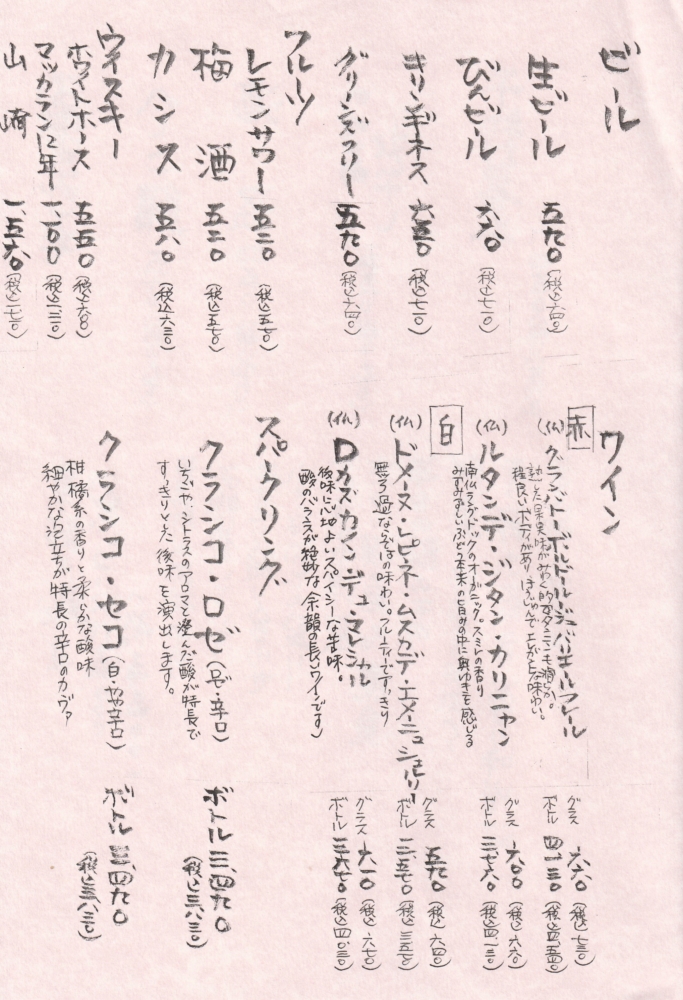 ビール
生ビール 五九〇 (税込六四〇)
びんビール 六六〇 (税込七一〇)
キリンギネス 六五〇 (税込七一〇)
グリーンズフリー 五九〇 (税込六四〇)
フルーツ
レモンサワー 五二〇 (税込五七〇)
梅酒 五二〇 (税込五七〇)
カシス 五八〇 (税込六三〇)
ウイスキー
ホワイトホース 五五〇 (税込六〇〇)
マッカラン12年 一、一〇〇 (税込一、二一〇)
山崎 一、五六〇 (税込一、七一〇)
ワイン
赤
(仏) グランバトー・ボルドー・ルージュ・バリエールフレール
熟した果実味がみわく的。タンニンも滑らか。
程良いボディがありほうじゅんで上がる味わい。
グラス 六六〇 (税込七三〇)
ボトル 四、一三〇 (税込四、五四〇)
(仏) ルタンデ・ジタン・カリニャン
南仏ラングドックのオーガニック。スミレの香り
みずみずしいぶどう本来の旨みの中に奥ゆきを感じる
グラス 六〇〇 (税込六六〇)
ボトル 三、七六〇 (税込四、一三〇)
白
(仏) ドメーヌ・ピネ・ムスカデ・エメーニュ シェリー
無ろ過ならではの味わい。フルーティですっきり
グラス 五九〇 (税込六四〇)
ボトル 三、二五〇 (税込三、五七〇)
(仏) ロカズカイン デュ・マレシャル
後味に心地よいスパイシーな苦味。
酸のバランスが絶妙な余韻の長いワインです)
グラス 六一〇 (税込六七〇)
ボトル 三、六七〇 (税込四、〇三〇)
スパークリング
クランコ・ロゼ (ロゼ・辛口) ボトル 三、四九〇 (税込三、八三〇)
いちごや、シトラスのアロマと澄んだ酸が特長で
すっきりとした後味を演出します。
クランコ・セコ (白・やや辛口) ボトル 三、四九〇 (税込三、八三〇)
柑橘系の香りと柔らかな酸味
細やかな泡立ちが特長の辛口のカヴァ